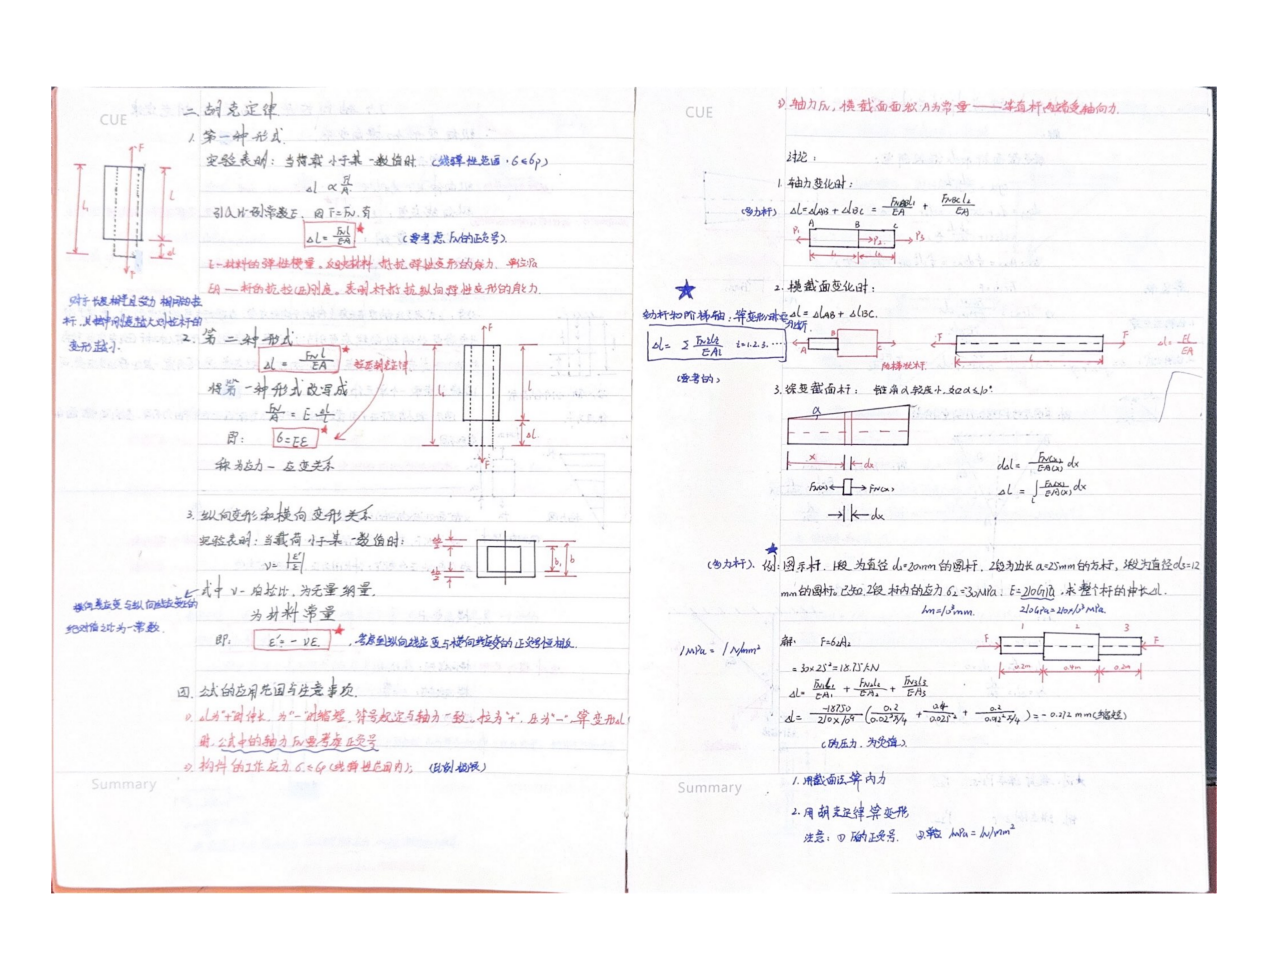 CUE
二 胡克定律
1. 第一种形式.
实验表明：当荷载小于某一数值时 (线弹性范围，σ≤σp)
Δl ∝ Fl/A
引入比例常数E，因F=FN,有
Δl = FNl/EA (要考虑FN的正负号).
E—材料的弹性模量。反映材料抵抗弹性变形的能力. 单位Pa
EA — 杆的抗拉(压)刚度。表明杆抵抗纵向弹性变形的能力.
对于长度相等且受力相同的拉
杆，其抗拉刚度越大则拉杆的
变形越小.
2. 第二种形式
Δl = FNl/EA
将第一种形式改写成
FN/A = E Δl/l
即： σ=Eε
称为应力－应变关系
3. 纵向变形和横向变形关系
实验表明：当载荷小于某一数值时：
ν=|ε'/ε|
式中 ν－泊松比，为无量纲量，
为材料常量
横向应变与纵向线应变的
绝对值之比为一常数.
即. ε'=－νε
四. 公式的应用范围与注意事项.
① Δl为"+"时伸长，为"－"时缩短，符号规定与轴力一致。拉为"+"，压为"－".算变形Δl
时，公式中的轴力FN要考虑正负号
② 构件的工作应力 σ≤σp(线弹性范围内)；
Summary
CUE
① 轴力FN，横截面面积A为常量——等直杆两端受轴向力.
讨论：
1. 轴力变化时：
(多力杆) Δl=ΔlAB+ΔlBC = FNABl1/EA + FNBCl2/EA
A B C
P1 P2 P3
l1 l2
2. 横截面变化时：
Δl=ΔlAB+ΔlBC.
Δl= Σ FNili/EAi i=1.2.3.…
A B C
阶梯状杆.
F F
l
Δl = FL/EA
3. 徐变截面杆： 锥角α较度小，如α≤10°
α
x dx
FN(x) FN(x)
dx
dΔl = FN(x)/EA(x) dx
Δl = ∫l FN(x)/EA(x) dx
(多力杆). 例：图示杆. 1段为直径d1=20mm的圆杆，2段为边长a=25mm的方杆，3段为直径d3=12
mm的圆杆。已知2段杆内的应力σ2=-30MPa；E=210GPa，求整个杆的伸长Δl.
1m=10³mm. 210GPa=210×10³MPa
1MPa = 1N/mm²
解: F=σ2A2
=30×25²=18.75kN
Δl= FN1l1/EA1 + FN2l2/EA2 + FN3l3/EA3
Δl= -18750/210×10⁹ (0.2/0.02²π/4 + 0.4/0.025² + 0.2/0.012²π/4)=－0.272mm(缩短)
(为压力，为负值.)
F 1 2 3 F
0.2m 0.4m 0.2m
1. 用截面法算内力
2. 用胡克定律算变形
注意：① F的正负号. ②单位 MPa=N/mm²
Summary